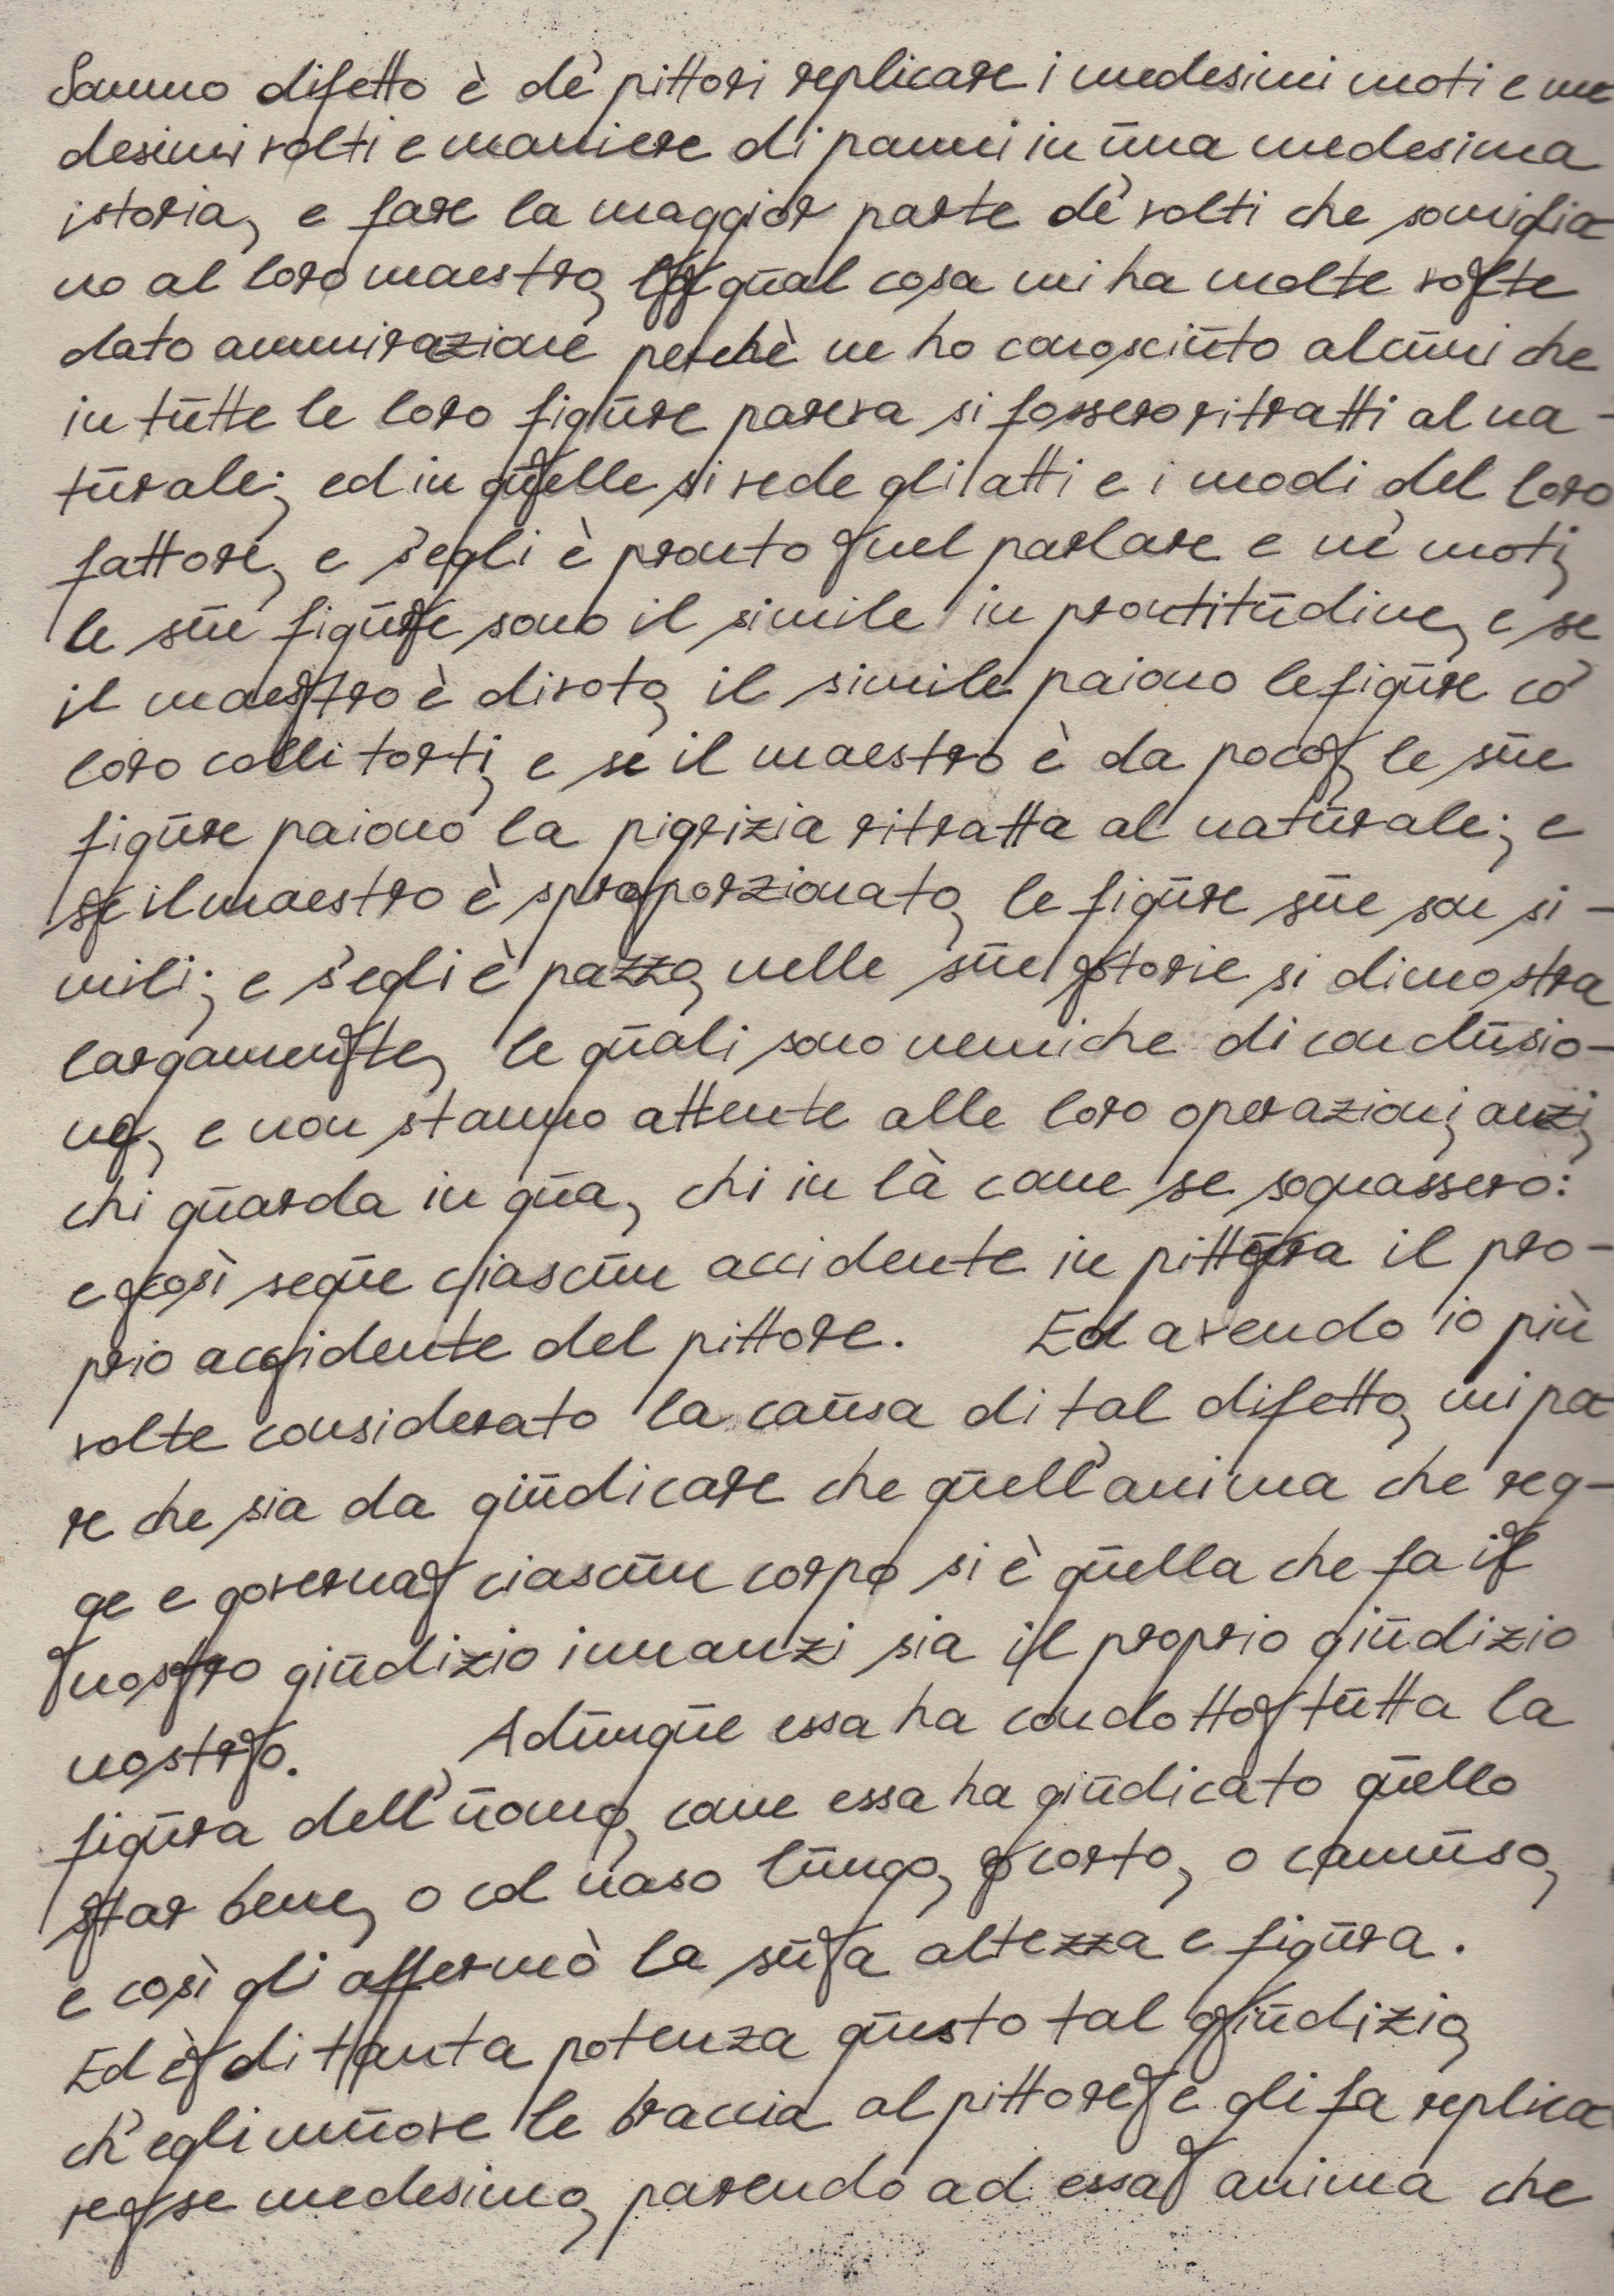 Sommo difetto è de' pittori replicare i medesimi moti e me
desimi volti e maniere di panni in una medesima
istoria, e fare la maggior parte de' volti che somiglia
no al loro maestro, la qual cosa mi ha molte volte
dato ammirazione perchè ne ho conosciuto alcuni che
in tutte le loro figure pareva si fossero ritratti al na-
turale; ed in quelle si vede gli atti e i modi del loro
fattore, e s'egli è pronto nel parlare e ne' moti,
le sue figure sono il simile in prontitudine, e se
il maestro è divoto, il simile paiono le figure co'
loro colli torti, e se il maestro è da poco, le sue
figure paiono la pigrizia ritratta al naturale; e
se il maestro è sproporzionato, le figure sue son si-
mili; e s'egli è pazzo, nelle sue storie si dimostra
largamente, le quali sono nemiche di conclusio-
ne, e non stanno attente alle loro operazioni, anzi,
chi guarda in qua, chi in là come se sognassero:
e così segue ciascun accidente in pittura il pro-
prio accidente del pittore. Ed avendo io più
volte considerato la causa di tal difetto, mi pa
re che sia da giudicare che quell'anima che reg-
ge e governa ciascun corpo si è quella che fa il
nostro giudizio innanzi sia il proprio giudizio
nostro. Adunque essa ha condotto tutta la
figura dell'uomo, come essa ha giudicato quello
star bene, o col naso lungo, o corto, o camuso,
e così gli affermò la sua altezza e figura.
Ed è di tanta potenza questo tal giudizio,
ch'egli muove le braccia al pittore e gli fa replica
re se medesimo, parendo ad essa anima che